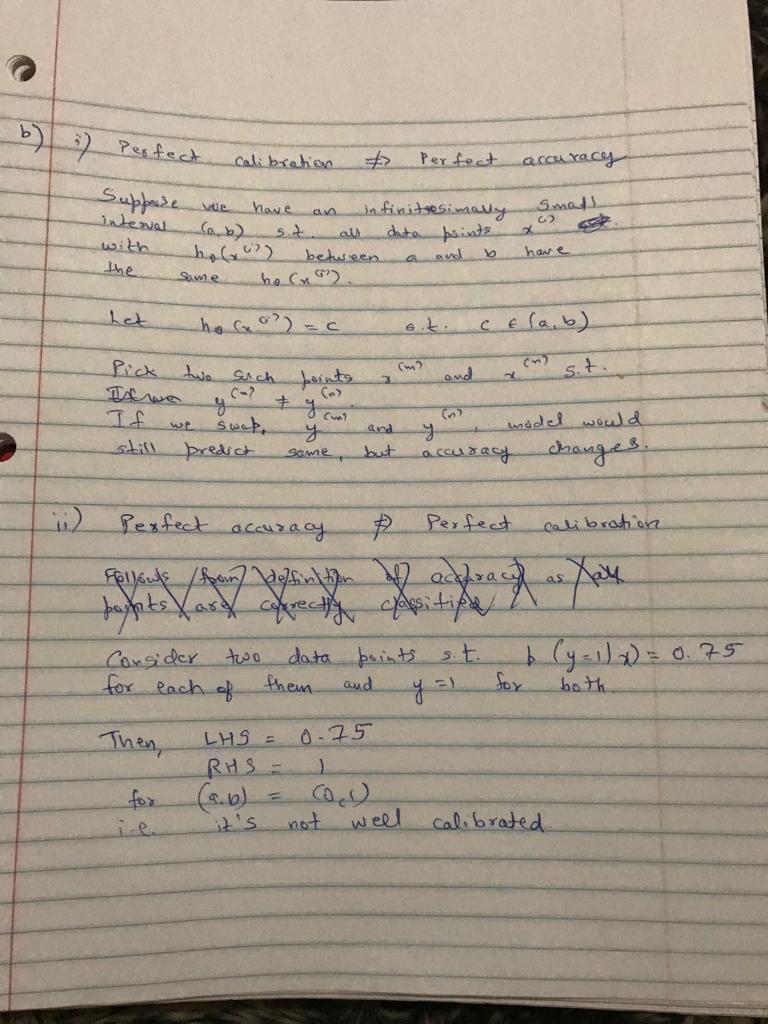 b) i) Perfect calibration ⇏ Perfect accuracy
Suppose we have an infinitesimally small
interval (a, b) s.t. all data points x^(i)
with h_θ(x^(i)) between a and b have
the same h_θ(x^(i)).
Let h_θ(x^(i)) = c s.t. c ∈ (a, b)
Pick two such points x^(m) and x^(n) s.t.
If we y^(m) ≠ y^(n).
If we swap, y^(m) and y^(n), model would
still predict same, but accuracy changes.
ii) Perfect accuracy ⇏ Perfect calibration
Follows from definition of accuracy as all
points are correctly classified
Consider two data points s.t. p(y=1|x) = 0.75
for each of them and y=1 for both
Then, LHS = 0.75
RHS = 1
for (a,b) = (0,1)
i.e. it's not well calibrated